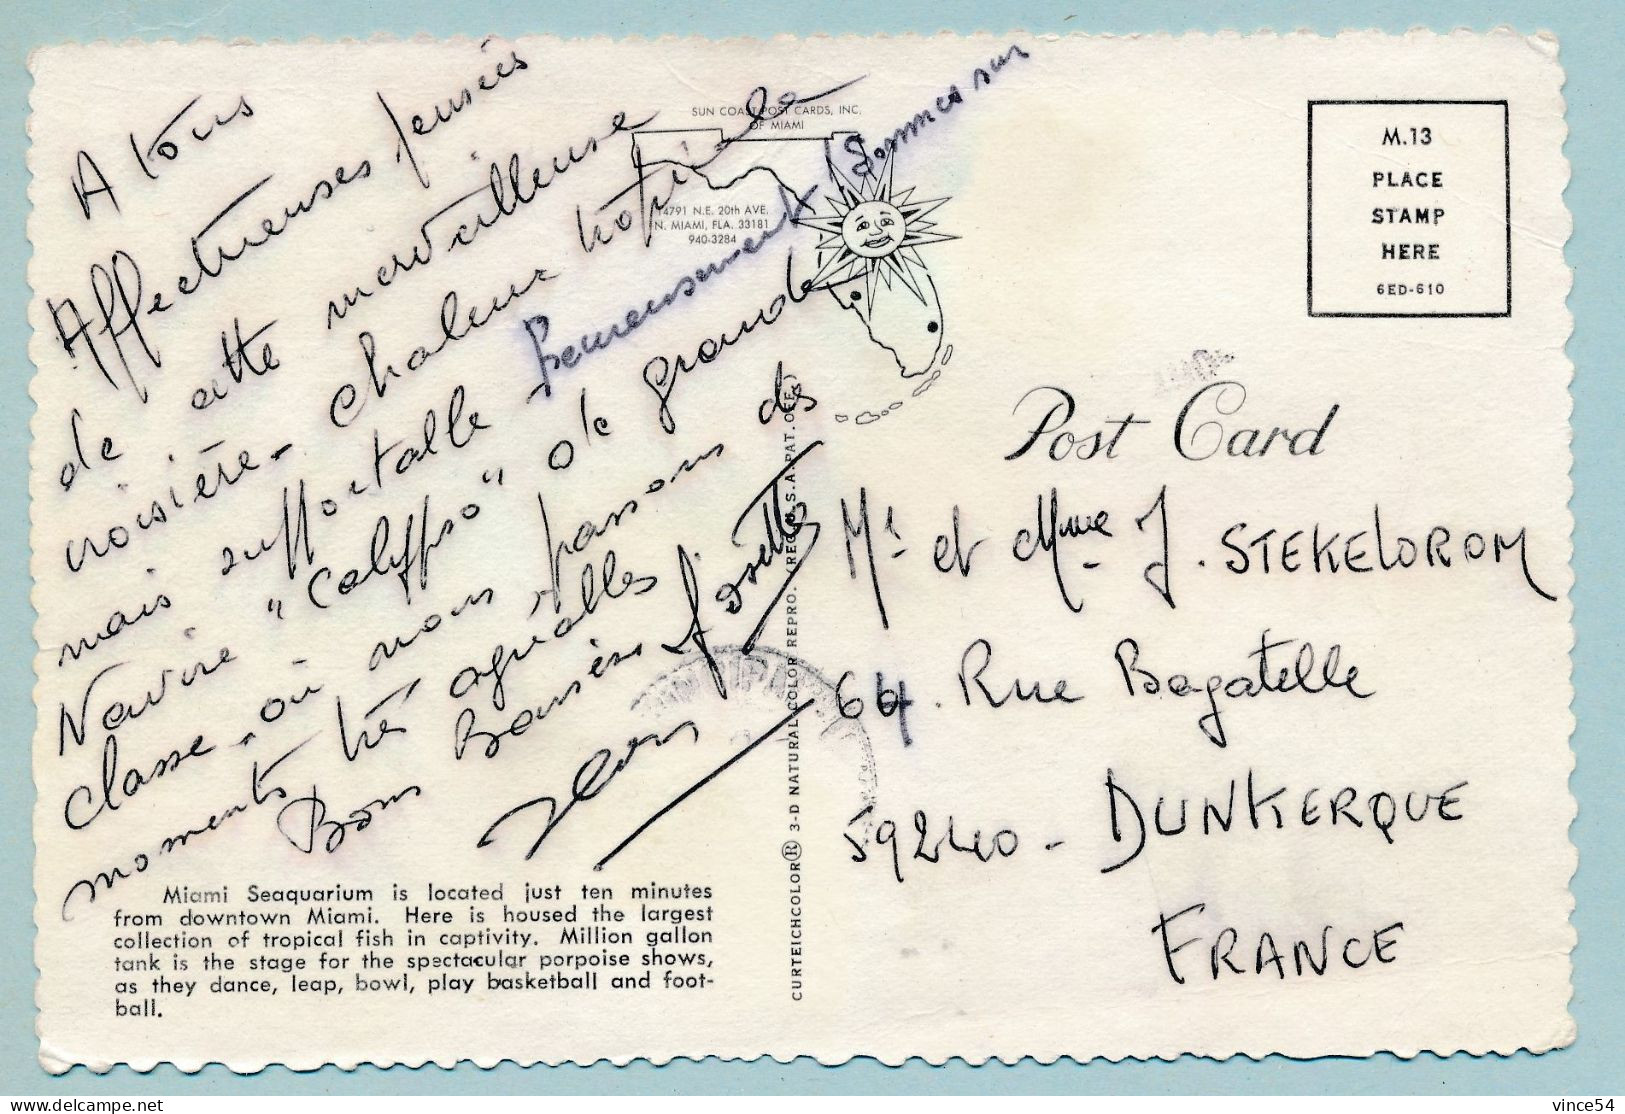 A tous
Affectueuses pensées
de cette merveilleuse
croisière - Chaleur tropicale
mais supportable heureusement! Sommes sur
Navire "Calypso" de grande
classe - où nous passons des
moments très agréables
Bons Baisers Josette
SUN COAST POST CARDS, INC.
OF MIAMI
14791 N.E. 20th AVE.
N. MIAMI, FLA. 33181
940-3284
Miami Seaquarium is located just ten minutes
from downtown Miami. Here is housed the largest
collection of tropical fish in captivity. Million gallon
tank is the stage for the spectacular porpoise shows,
as they dance, leap, bowl, play basketball and foot-
ball.
CURTEICHCOLOR® 3-D NATURAL COLOR REPRO. (REG. U.S.A. PAT. OFF.)
M.13
PLACE
STAMP
HERE
6ED-610
Post Card
Mr et Mme J. STEKELOROM
64. Rue Bagatelle
59240 - DUNKERQUE
FRANCE
delcampe.net
vince54